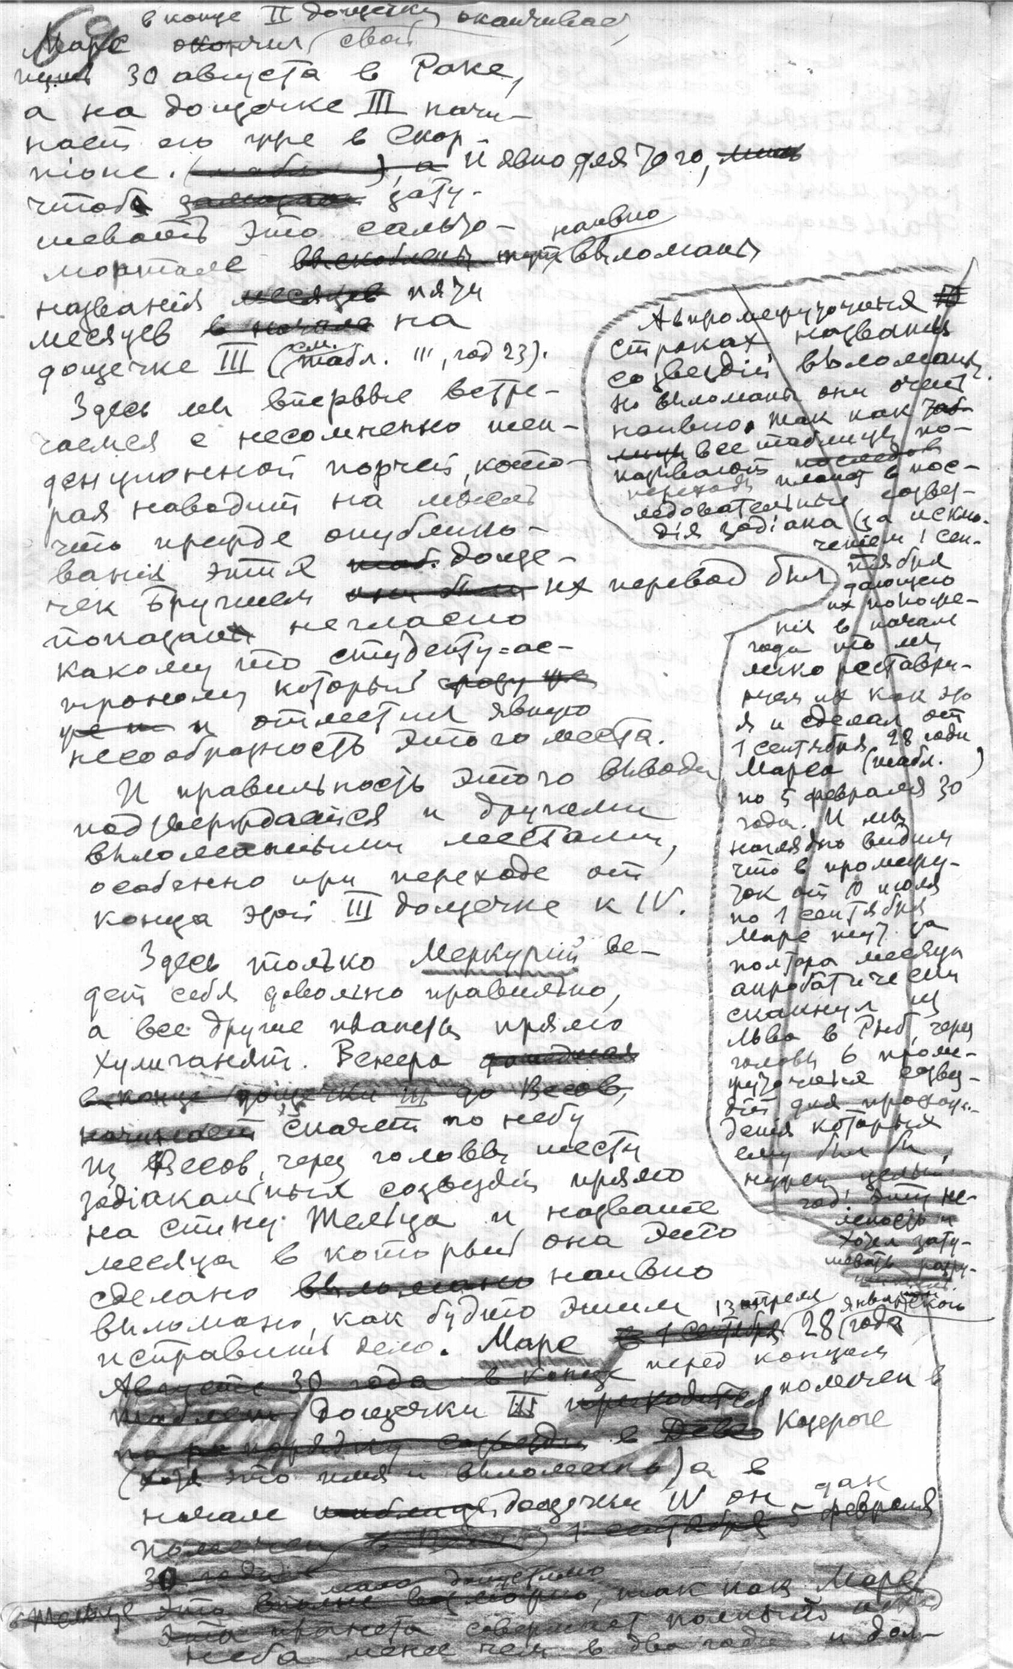 в конце II дощечки оканчивает
Марс свой
30 августа в Раке,
а на дощечке III начи-
нает его уже в Скор-
пионе. И явно для того,
чтоб зату-
шевать это сальто-
мортале наивно выломаны
названия пяти
месяцев на
дощечке III (см. табл. III, год 23).
Здесь мы впервые встре-
чаемся с несомненно тен-
денционной порчей, кото-
рая наводит на мысль
что прежде опублико-
вания этих доще-
чек их перевод был
показан негласно
какому то студенту-ас-
троному который
и отметил явную
несообразность этого места.
И правильность этого вывода
подтверждается и другими
выломанными местами,
особенно при переходе от
конца этой III дощечке к IV.
Здесь только Меркурий ве-
дет себя довольно правильно,
а все другие планеты прямо
хулиганят. Венера
в конце дощечки III до Весов,
начинает скачет по небу
из Весов, через головы шести
зодиакальных созвездий прямо
на спину Тельца и название
месяца в который она это
сделано выломано наивно
выломано, как будто этим
исправишь дело. Марс 13 апреля 28 года
Августе 30 года в конце перед концом
дощечки III помечен в
в Деве Козероге
(хотя это имя и выломано) а в
начале таблицы дощечки IV он дан
помечен 1 сентября 5 февраля
30 года
в Тельце это мало допустимо, так как Марс
эта планета совершает полный обход
неба менее чем в два года и дол-
А в промежуточных
строках названия
созвездий выломаны.
Но выломаны они очень
наивно, так как
все таблицы по-
казывают
переходы планет в пос-
ледовательные созвез-
дия зодиака (за исклю-
чением 1 сен-
тября
дающего
их положе-
ния в начале
года что мы
легко реставри-
руем их как это
я и сделал от
1 сентября 28 года
Марса (табл. )
по 5 февраля 30
года. И мы
наглядно видим
что в промежу-
ток от 10 июля
по 1 сентября
Марс тут за
полтора месяца
акробатически
скакнул из
Льва в Рыб, через
головы 6 проме-
жуточных созвез-
дий для прохож-
дения которых
ему был бы
нужен целый
год! Эту не-
лепость и
хотел зату-
шевать